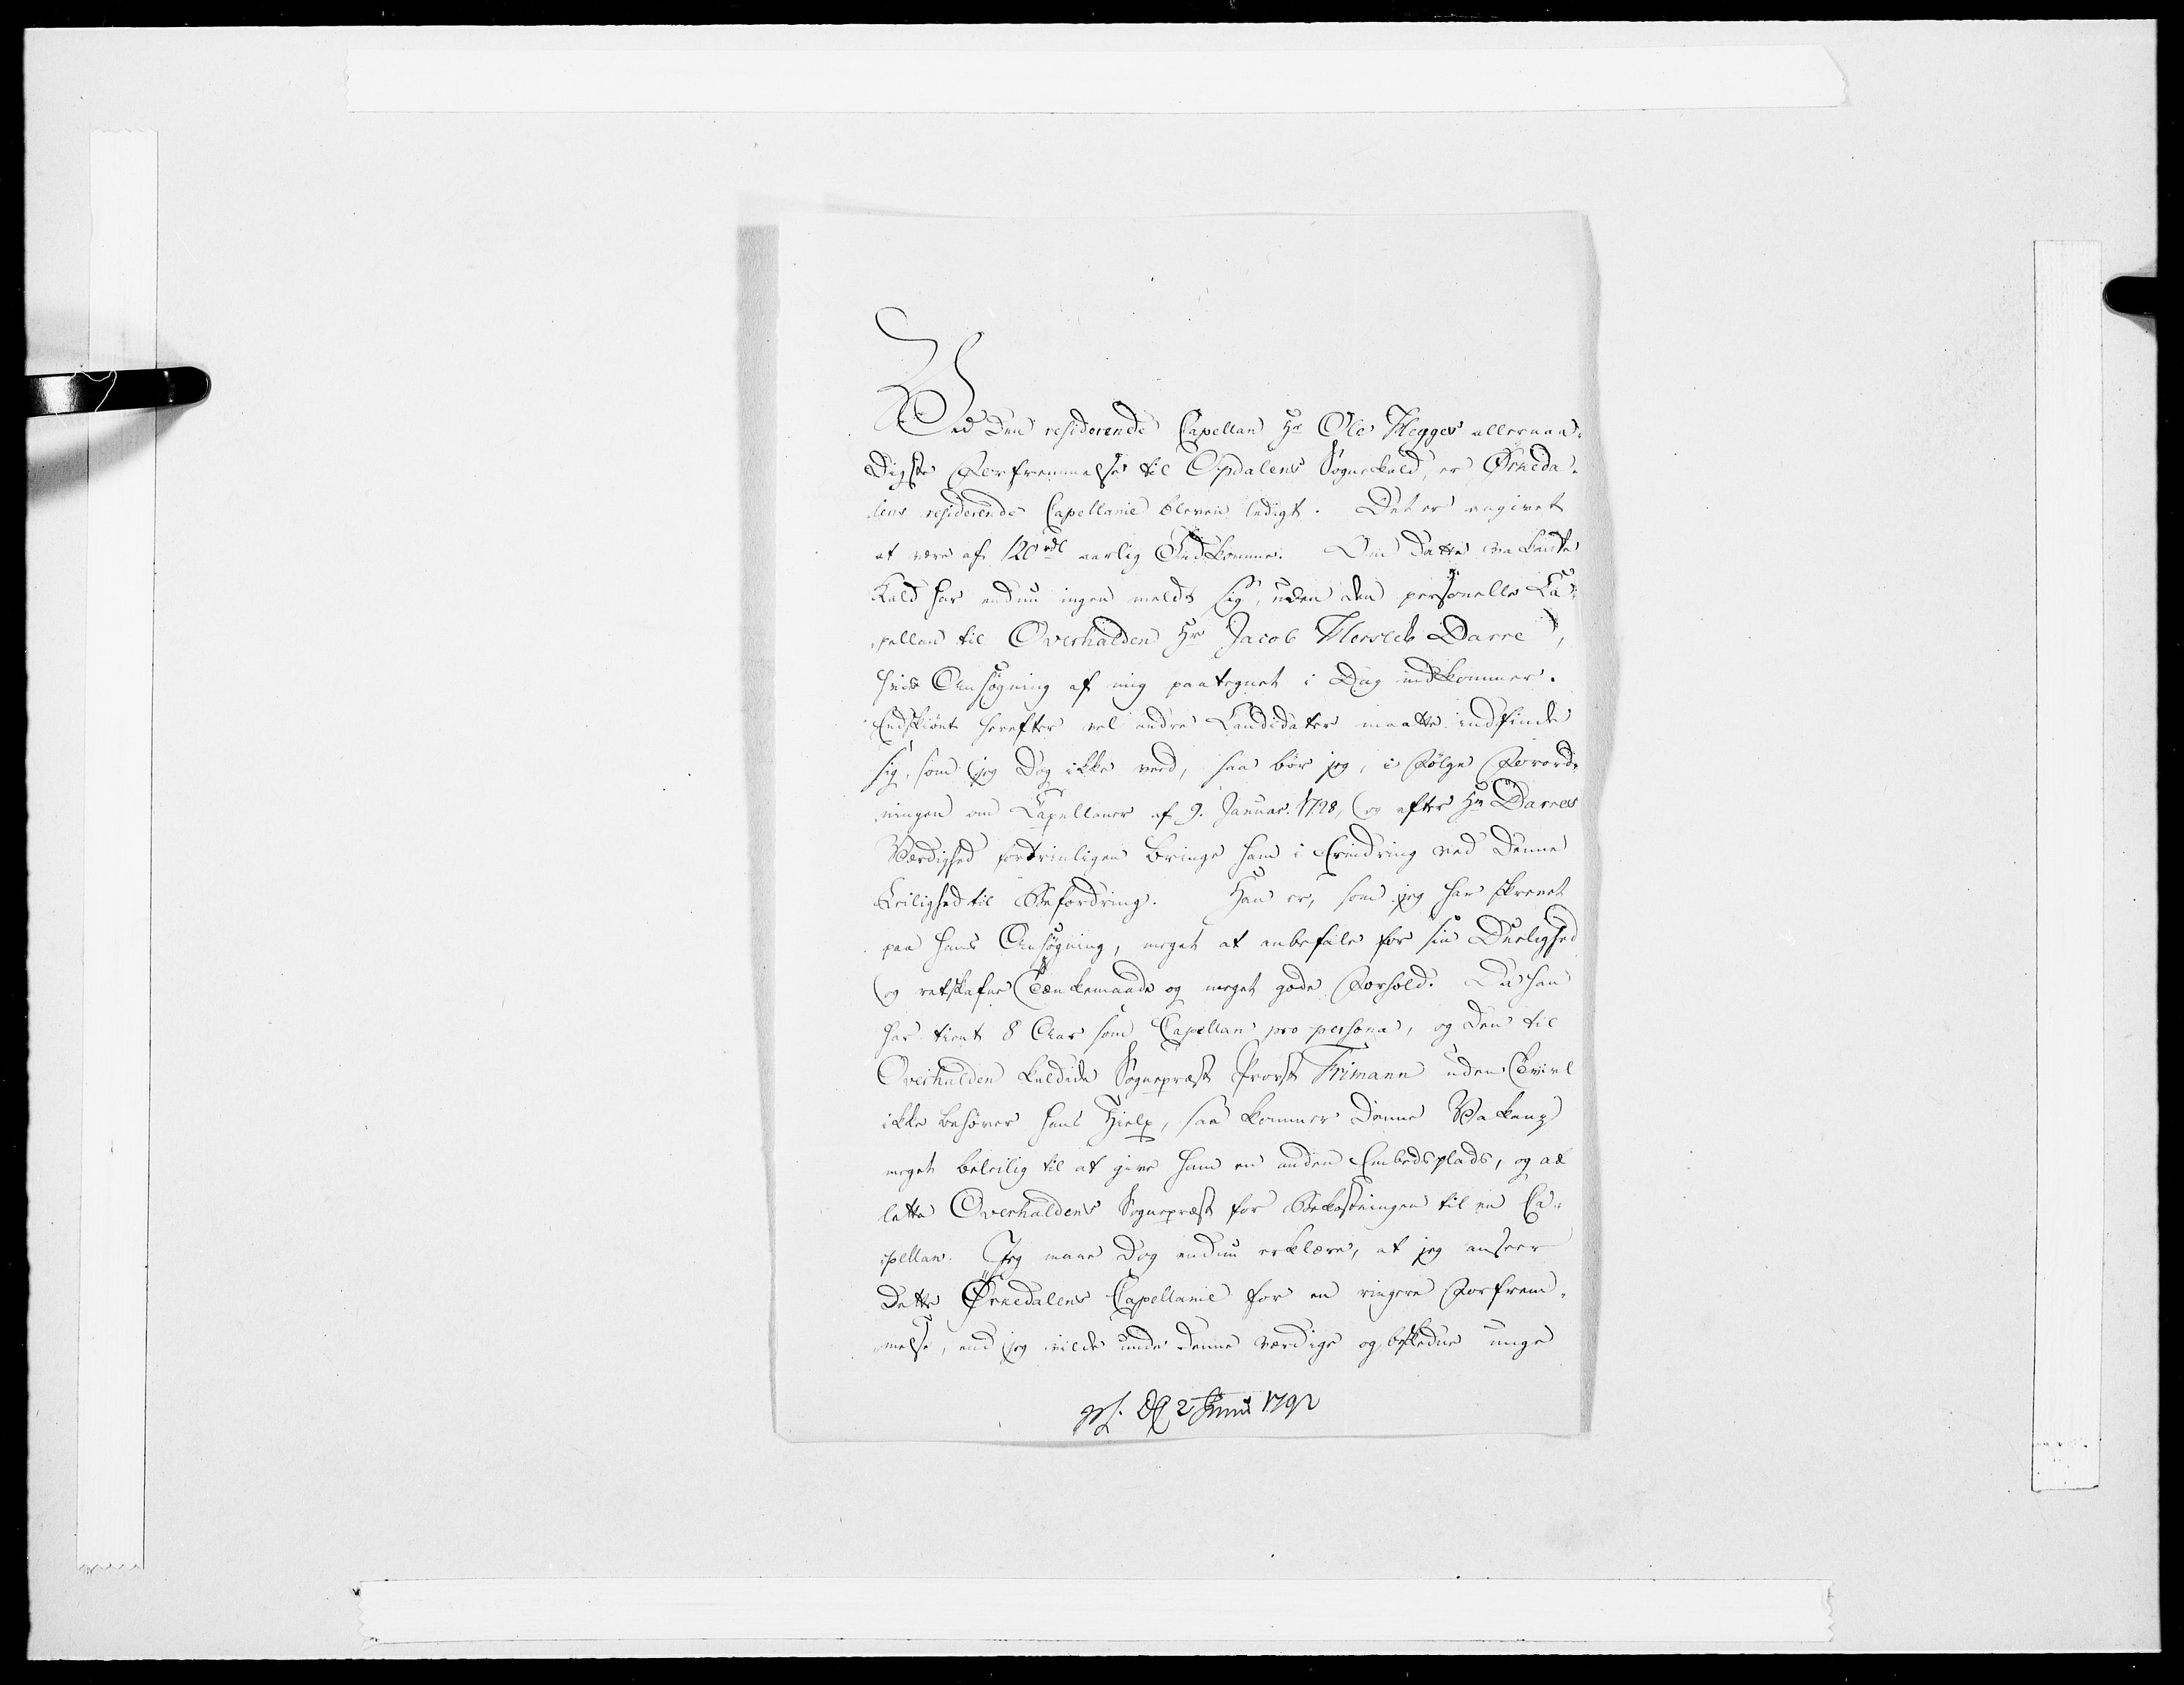 Ved den residerende Capellan Hr Ole Hegges allernaa-
digste Forfremmelse til Opdalens Sognekald, er Ørkeda-
lens residerende Capellanie bleven ledigt. Det er angivet
at være af 120 rdl aarlig Indkomme. Om dette vakante
Kald har endnu ingen meldt sig, uden den personelle Ca-
pellan til Overhalden Hr Jacob Hersleb Darre,
hvis Ansøgning af mig paategnet i Dag indkommer.
Endskiønt herefter vel andre Candidater maatte indfinde
sig, som jeg dog ikke veed, saa bør jeg, i Følge Forord-
ningen om Capellaner af 9. Januar. 1728, og efter Hr Darres
Værdighed fortrinligen bringe ham i Erindring ved denne
Leilighed til Befordring. Han er, som jeg har skrevet
paa hans Ansøgning, meget at anbefale for sin Duelighed
og retskafne Tænkemaade og meget gode Forhold. Da han
har tient 8 Aar som Capellan pro persona, og den til
Overhalden kaldede Sognepræst Provst Frimann uden Tvivl
ikke behøver hans Hielp, saa kommer denne Vakanz
meget beleilig til at give ham en anden Embedsplads, og at
lette Overhaldens Sognepræst for Bekostningen til en Ca-
pellan. Jeg maae dog endnu erklære, at jeg anseer
dette Ørkedalens Capellanie for en ringere Forfrem-
melse, end jeg vilde unde denne værdige og beskedne unge
2 Junii 1792